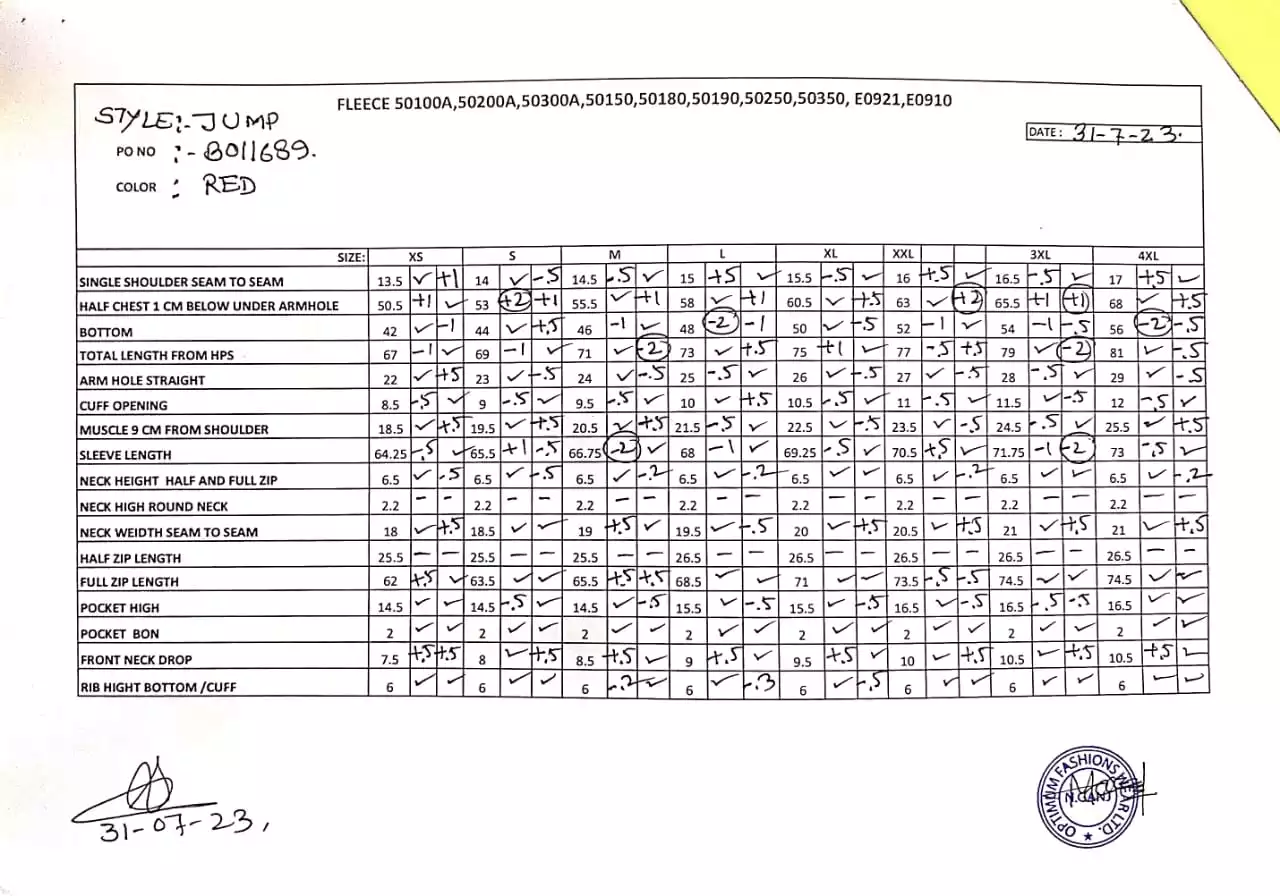 FLEECE 50100A,50200A,50300A,50150,50180,50190,50250,50350, E0921,E0910
STYLE:- JUMP
DATE: 31-7-23.
PO NO :- B011689.
COLOR : RED
SIZE: XS S M L XL XXL 3XL 4XL
SINGLE SHOULDER SEAM TO SEAM 13.5 ✓ +1 14 ✓ -.5 14.5 -.5 ✓ 15 +5 ✓ 15.5 -.5 ✓ 16 +.5 ✓ 16.5 -.5 ✓ 17 +.5 ✓
HALF CHEST 1 CM BELOW UNDER ARMHOLE 50.5 +1 ✓ 53 +2 +1 55.5 ✓ +1 58 ✓ +1 60.5 ✓ +.5 63 ✓ +2 65.5 +1 +1 68 ✓ +.5
BOTTOM 42 ✓ -1 44 ✓ +.5 46 -1 ✓ 48 -2 -1 50 ✓ -.5 52 -1 ✓ 54 -1 -.5 56 -2 -.5
TOTAL LENGTH FROM HPS 67 -1 ✓ 69 -1 ✓ 71 ✓ -2 73 ✓ +.5 75 +1 ✓ 77 -.5 +.5 79 ✓ -2 81 ✓ -.5
ARM HOLE STRAIGHT 22 ✓ +5 23 ✓ -.5 24 ✓ -.5 25 -.5 ✓ 26 ✓ -.5 27 ✓ -.5 28 -.5 ✓ 29 ✓ -.5
CUFF OPENING 8.5 -.5 ✓ 9 -.5 ✓ 9.5 -.5 ✓ 10 ✓ +.5 10.5 -.5 ✓ 11 -.5 ✓ 11.5 ✓ -.5 12 -.5 ✓
MUSCLE 9 CM FROM SHOULDER 18.5 ✓ +.5 19.5 ✓ +.5 20.5 ✓ +.5 21.5 -.5 ✓ 22.5 ✓ -.5 23.5 ✓ -.5 24.5 -.5 ✓ 25.5 ✓ +.5
SLEEVE LENGTH 64.25 -.5 ✓ 65.5 +1 -.5 66.75 -2 ✓ 68 -1 ✓ 69.25 -.5 ✓ 70.5 +.5 ✓ 71.75 -1 -2 73 -.5 ✓
NECK HEIGHT HALF AND FULL ZIP 6.5 ✓ -.5 6.5 ✓ -.5 6.5 ✓ -.2 6.5 ✓ -.2 6.5 ✓ ✓ 6.5 ✓ -.2 6.5 ✓ ✓ 6.5 ✓ -.2
NECK HIGH ROUND NECK 2.2 - - 2.2 - - 2.2 - - 2.2 - - 2.2 - - 2.2 - - 2.2 - - 2.2 - -
NECK WEIDTH SEAM TO SEAM 18 ✓ +.5 18.5 ✓ ✓ 19 +.5 ✓ 19.5 ✓ -.5 20 ✓ +.5 20.5 ✓ +.5 21 ✓ +.5 21 ✓ +.5
HALF ZIP LENGTH 25.5 - - 25.5 - - 25.5 - - 26.5 - - 26.5 - - 26.5 - - 26.5 - - 26.5 - -
FULL ZIP LENGTH 62 +.5 ✓ 63.5 ✓ ✓ 65.5 +.5 +.5 68.5 ✓ ✓ 71 ✓ ✓ 73.5 -.5 -.5 74.5 ✓ ✓ 74.5 ✓ ✓
POCKET HIGH 14.5 ✓ ✓ 14.5 -.5 ✓ 14.5 ✓ -.5 15.5 ✓ -.5 15.5 ✓ -.5 16.5 ✓ -.5 16.5 -.5 -.5 16.5 ✓ ✓
POCKET BON 2 ✓ ✓ 2 ✓ ✓ 2 ✓ ✓ 2 ✓ ✓ 2 ✓ ✓ 2 ✓ ✓ 2 ✓ ✓ 2 ✓ ✓
FRONT NECK DROP 7.5 +.5 +.5 8 ✓ +.5 8.5 +.5 ✓ 9 +.5 ✓ 9.5 +.5 ✓ 10 ✓ +.5 10.5 ✓ +.5 10.5 +.5 ✓
RIB HIGHT BOTTOM /CUFF 6 ✓ ✓ 6 ✓ ✓ 6 -.2 ✓ 6 ✓ -.3 6 ✓ -.5 6 ✓ ✓ 6 ✓ ✓ 6 ✓ ✓
31-07-23,
OPTIMUM FASHIONS WEAR LTD.
N.GANJ